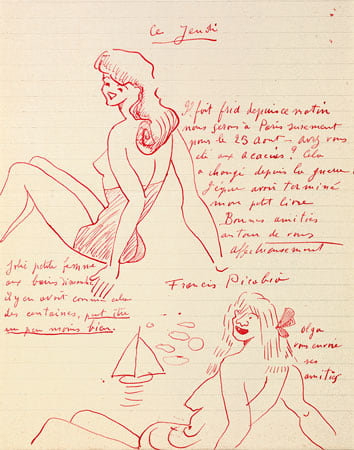 ce Jeudi
Il fait frid depuis ce matin
nous serons à Paris surement
pour le 25 Aout – avez vous
été aux acacias? Cela
a changé depuis la guerre.
J'espère avoir terminé
mon petit livre
Bonnes amitiés
autour de vous
affectueusement
Francis Picabia
Jolie petite femme
aux bains
il y en avait comme cela
des centaines, peut être
un peu moins bien.
olga
vous envoie
ses
amitiés